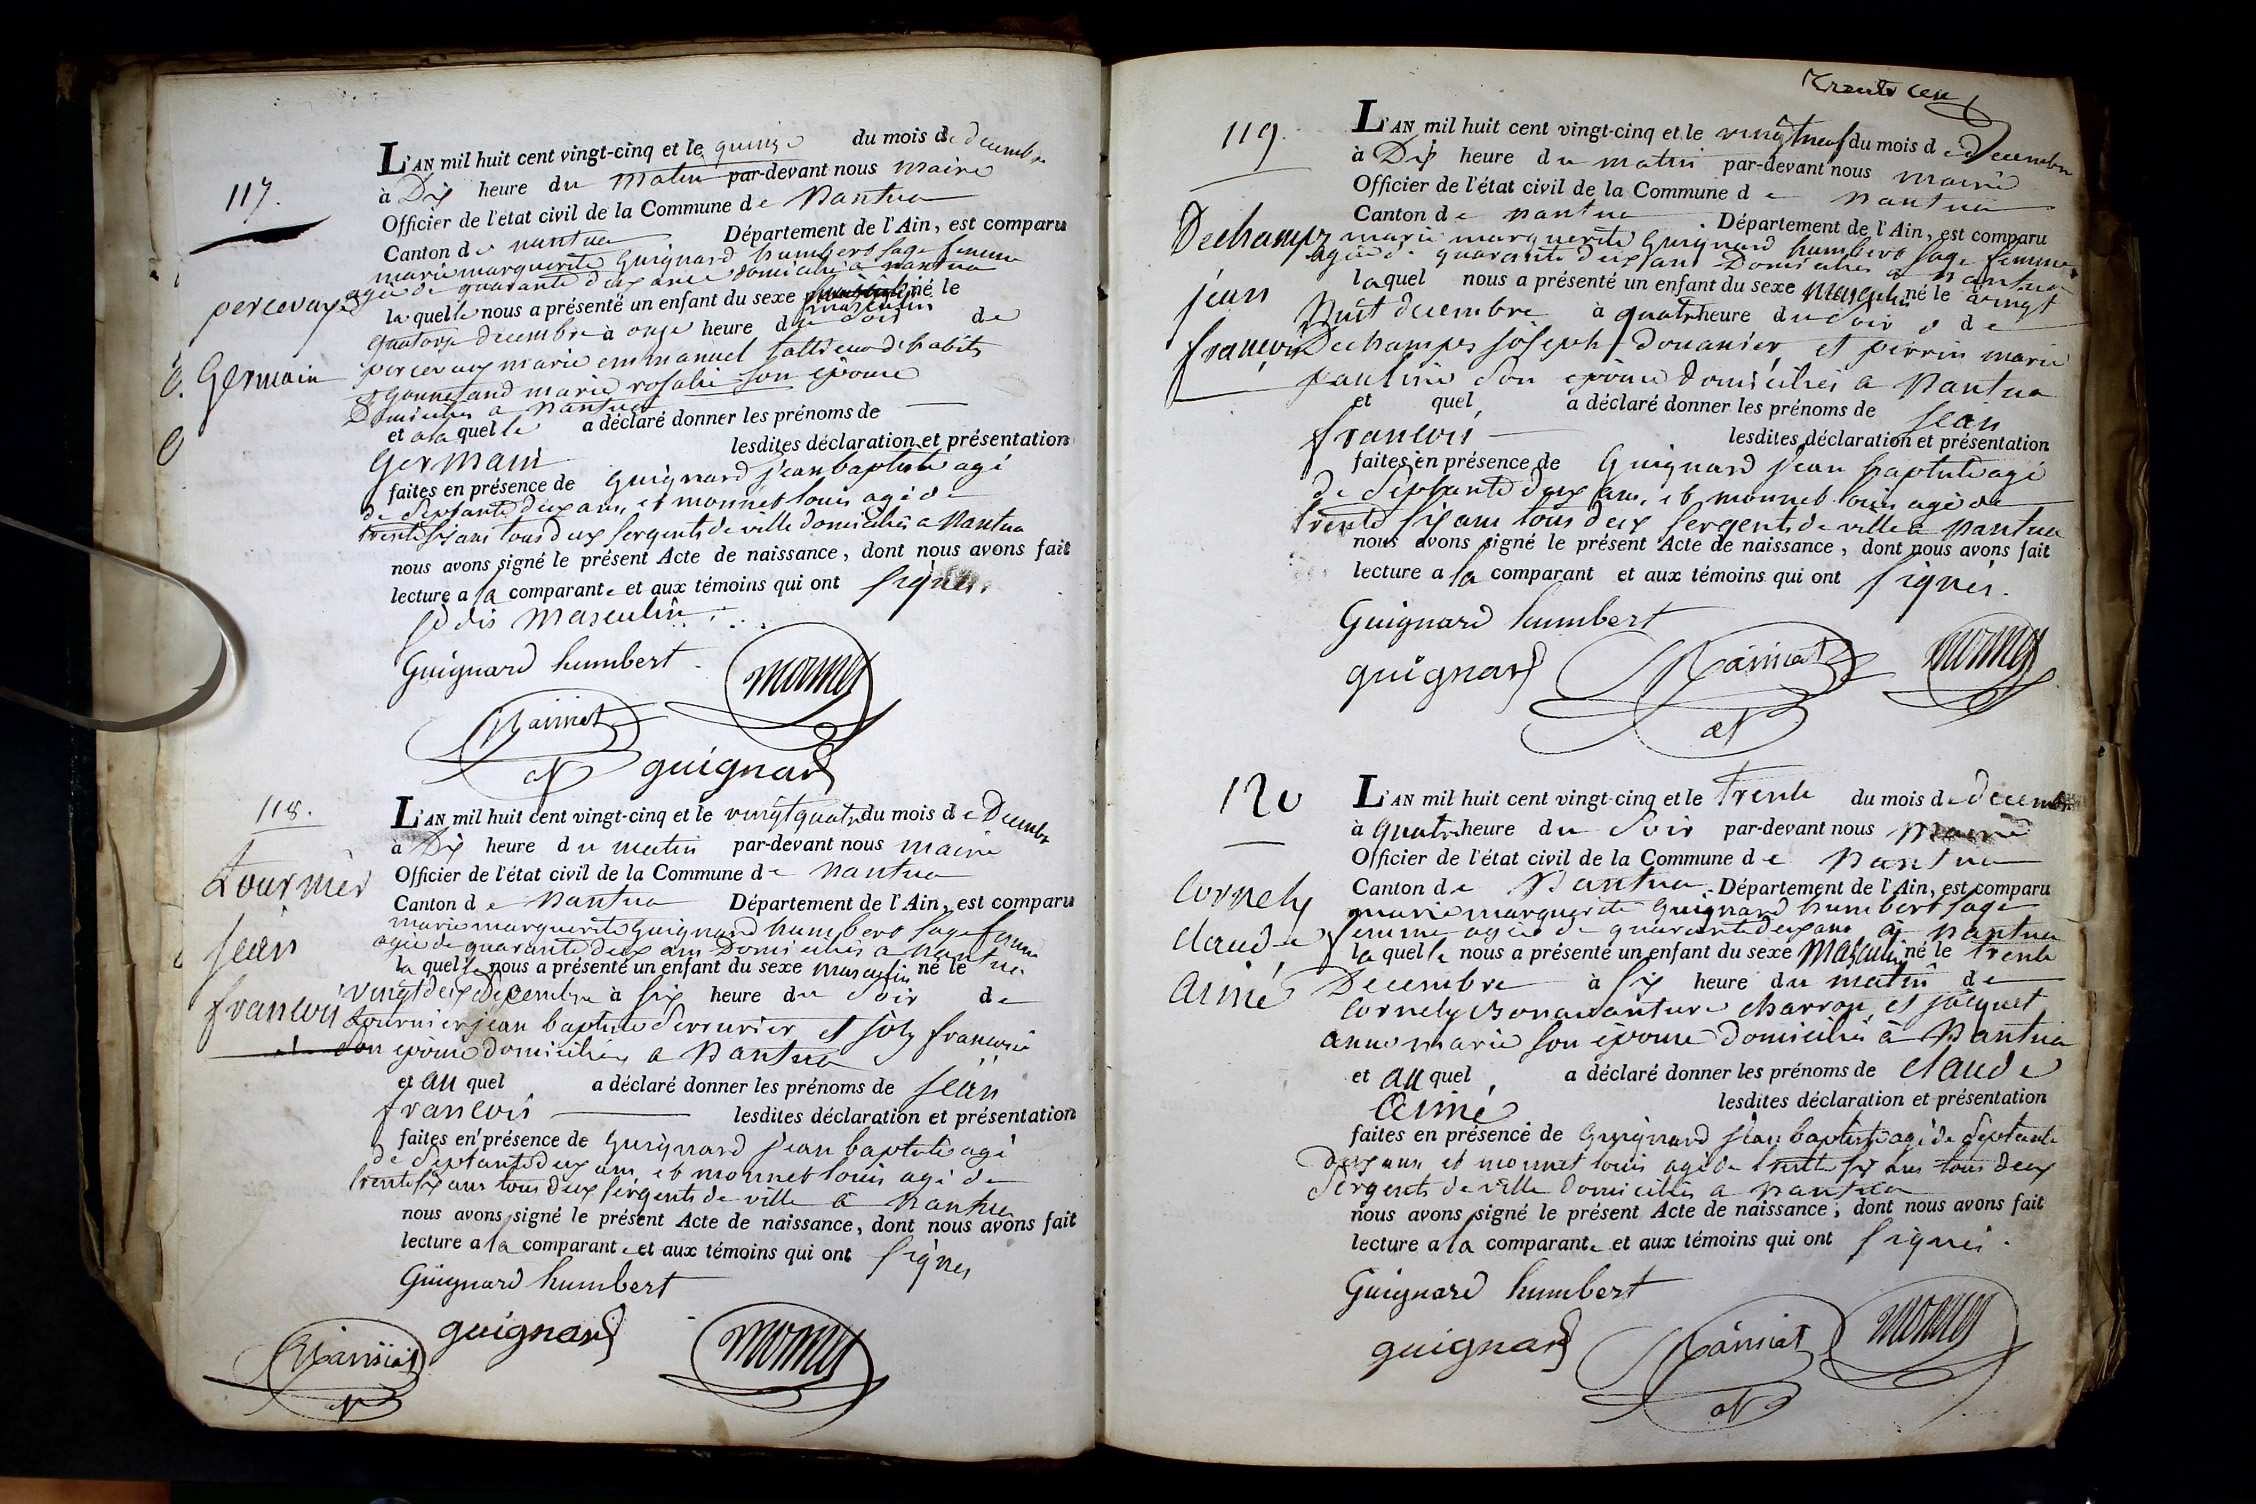 117.
percevaux
Germain
L'AN mil huit cent vingt-cinq et le quinze du mois de decembre
à Dix heure du matin par-devant nous maire
Officier de l'état civil de la Commune de Nantua
Canton de nantua Département de l'Ain, est comparu
marie marguerite Guignard humbert sage femme
agée de quarante deux ans domiciliée à nantua
laquelle nous a présenté un enfant du sexe masculin né le
quatorze decembre à onze heure du soir de
percevaux marie emmanuel tallieur d'habits
et gonnetand marie rosalie son epouse
Domiciliés a Nantua
et a laquelle a déclaré donner les prénoms de
Germain lesdites déclaration et présentation
faites en présence de Guignard jean baptiste agé
de Septante deux ans, et monnet louis agé de
trente six ans tous deux sergents de ville domiciliés a Nantua
nous avons signé le présent Acte de naissance, dont nous avons fait
lecture a la comparante et aux témoins qui ont signés.
je dis masculin
Guignard humbert
monnet
guignard
118.
tournier
jean
francois
L'AN mil huit cent vingt-cinq et le vingt quatre du mois de Decembre
à Dix heure du matin par-devant nous maire
Officier de l'état civil de la Commune de nantua
Canton de Nantua Département de l'Ain, est comparu
marie marguerite Guignard humbert sage femme
agée de quarante deux ans Domiciliés a nantua
laquelle nous a présenté un enfant du sexe masculin né le
vingt deux decembre à six heure du soir de
tournier jean baptiste serrurier et joly francoise
son epouse domiciliés a Nantua
et au quel a déclaré donner les prénoms de jean
francois lesdites déclaration et présentation
faites en présence de Guignard jean baptiste agé
de Septante deux ans et monnet louis agé de
trente six ans tous deux sergents de ville à Nantua
nous avons signé le présent Acte de naissance, dont nous avons fait
lecture a la comparante et aux témoins qui ont signés
Guignard humbert
guignard
monnet
119.
Dechamps
jean
françois
L'AN mil huit cent vingt-cinq et le vingt neuf du mois de decembre
à Dix heure du matin par-devant nous maire
Officier de l'état civil de la Commune de nantua
Canton de nantua Département de l'Ain, est comparu
marie marguerite Guignard humbert sage femme
agée de quarante deux ans Domiciliés a nantua
laquel nous a présenté un enfant du sexe masculin né le vingt
huit decembre à quatre heure du soir de
Dechamps joseph douanier et perrin marie
pauline son epouse domiciliés a Nantua
et quel a déclaré donner les prénoms de jean
francois lesdites déclaration et présentation
faites en présence de Guignard jean baptiste agé
de Septante deux ans, et monnet louis agé de
trente six ans tous deux sergents de ville a nantua
nous avons signé le présent Acte de naissance, dont nous avons fait
lecture a la comparant et aux témoins qui ont signés.
Guignard humbert
guignard
monnet
120
Cornely
claude
aimé
L'AN mil huit cent vingt-cinq et le trente du mois de decembre
à quatre heure du soir par-devant nous maire
Officier de l'état civil de la Commune de nantua
Canton de Nantua Département de l'Ain, est comparu
marie marguerite Guignard humbert sage
femme agée de quarante deux ans à nantua
laquelle nous a présenté un enfant du sexe masculin né le trente
Decembre à six heure du matin de
Cornely Bonavanture charron, et jacquet
anne marie son epouse domiciliés à Nantua
et au quel a déclaré donner les prénoms de claude
aimé lesdites déclaration et présentation
faites en présence de Guignard jean baptiste agé de Septante
deux ans et monnet louis agé de trente six ans tous deux
Sergents de ville domiciliés a nantua
nous avons signé le présent Acte de naissance, dont nous avons fait
lecture a la comparante et aux témoins qui ont signés.
Guignard humbert
guignard
monnet